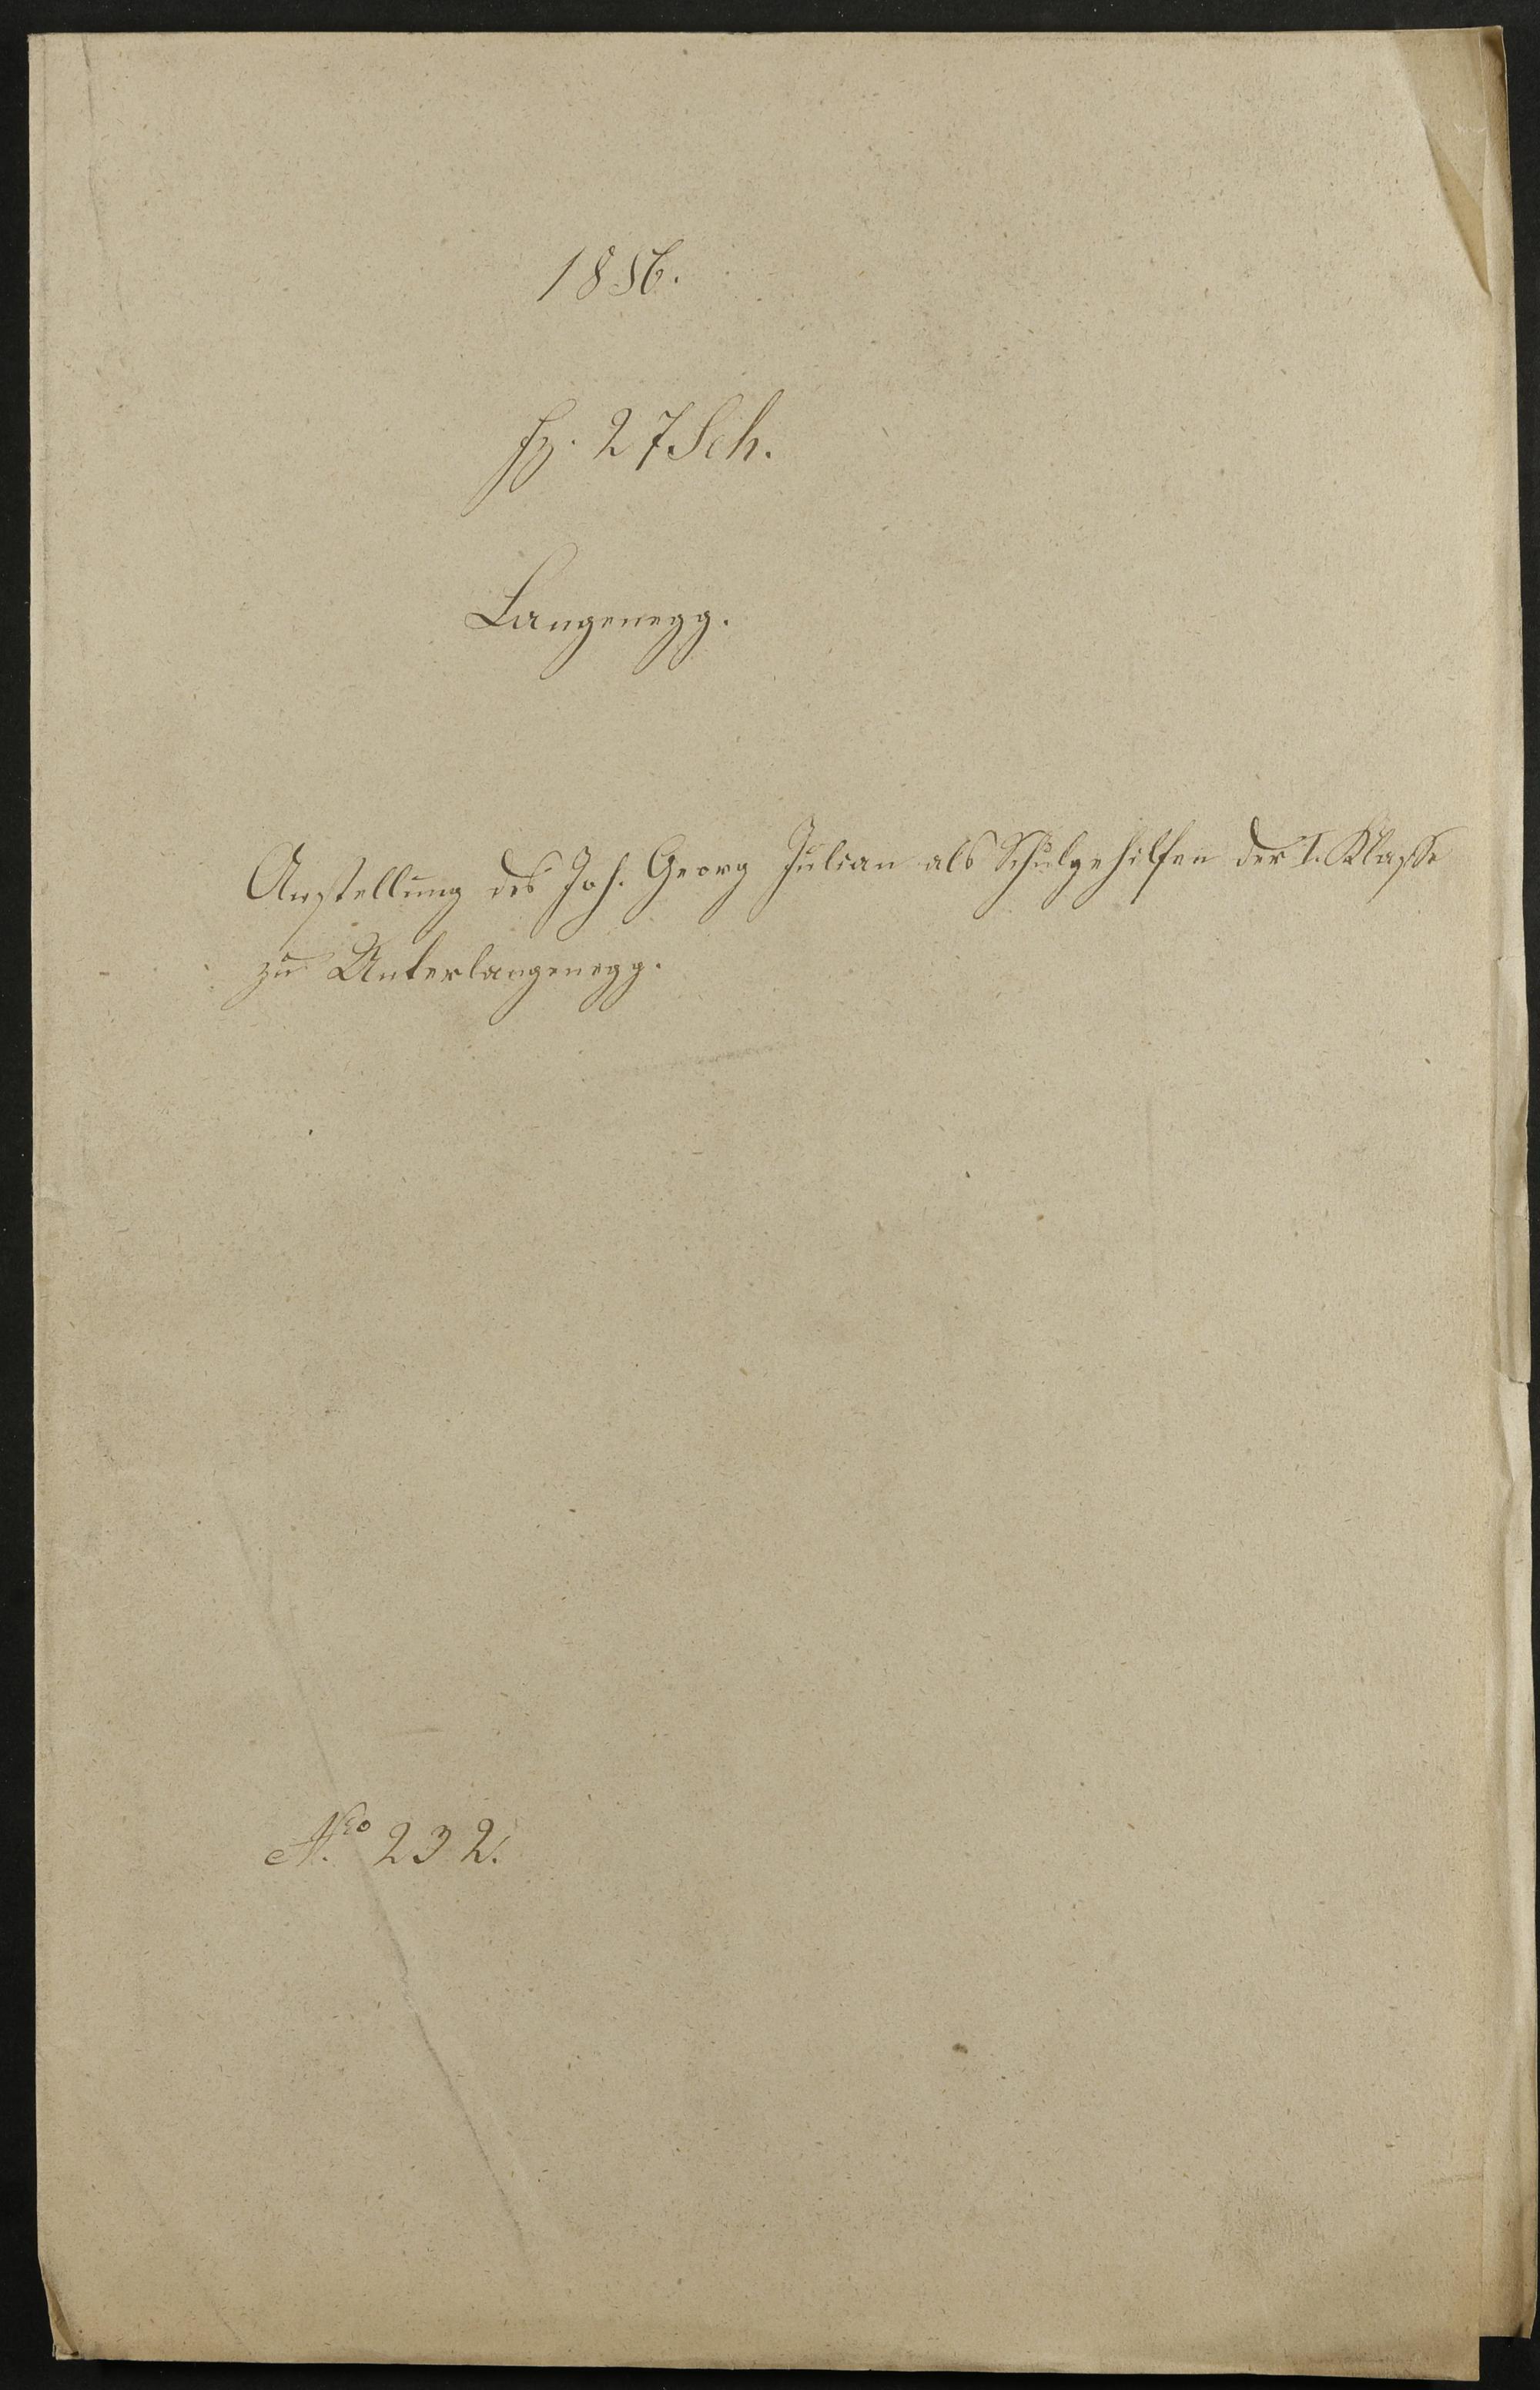 1856.
fz. 27 Sch.
Langenegg.
Anstellung des Joh. Georg Julian als Schulgehilfen der I. Klasse
zu Unterlangenegg.
Nro 232.